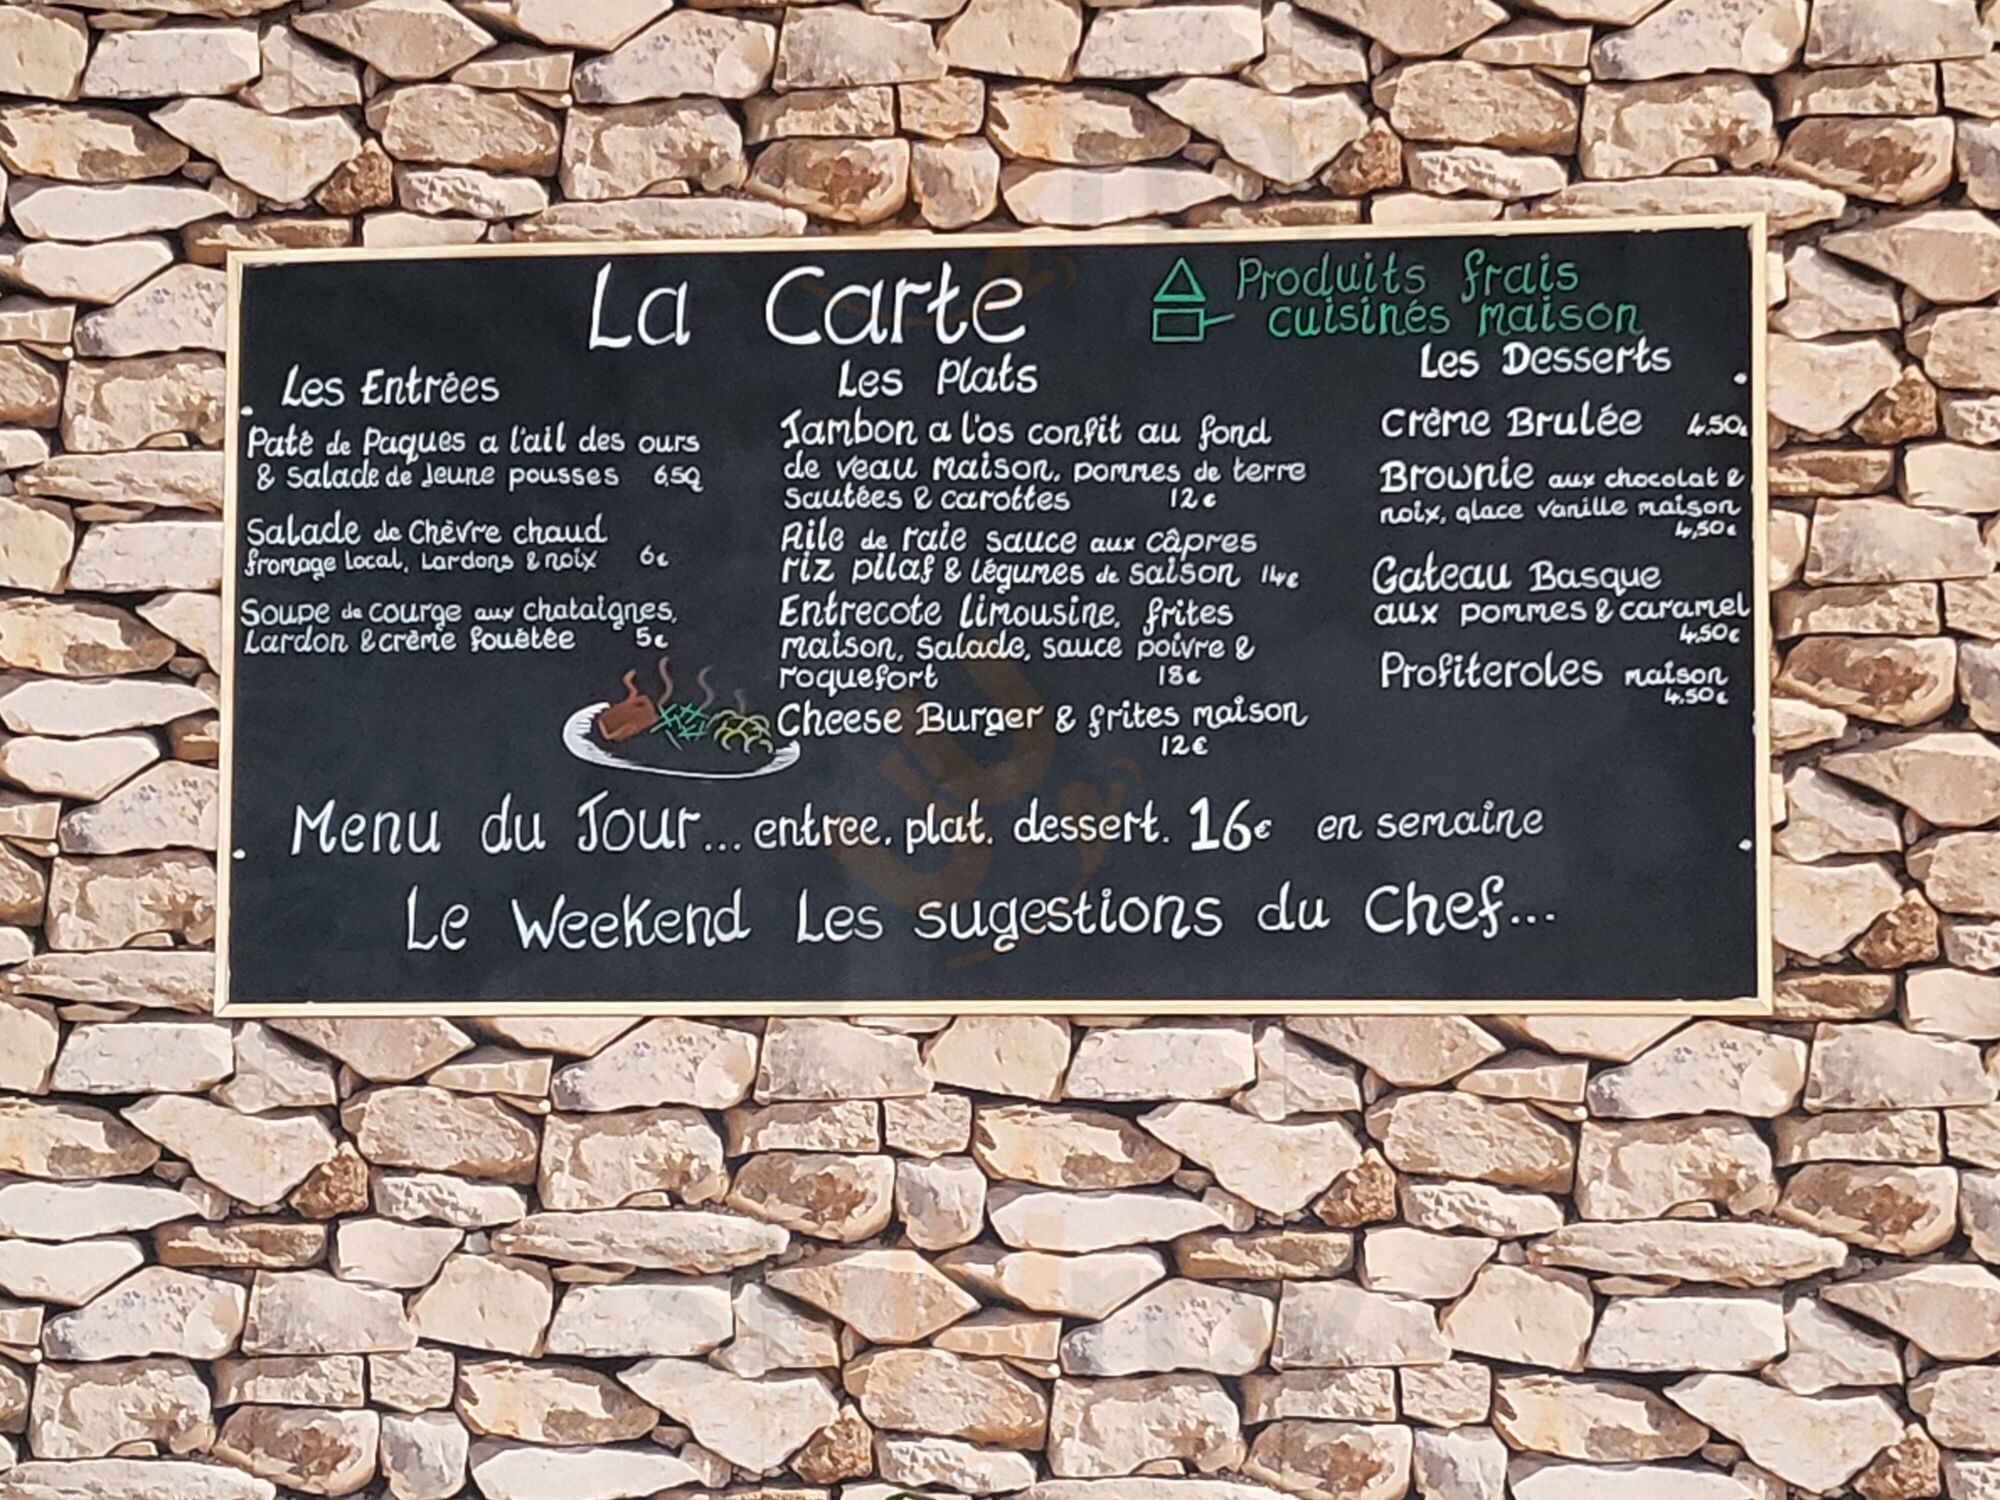 La Carte
Produits frais
cuisinés maison
Les Entrées
Patê de Paques a l'ail des ours
& Salade de Jeune pousses 6,50
Salade de Chèvre chaud
fromage local, Lardons & noix 6€
Soupe de courge aux chataignes,
Lardon & crême fouêtée 5€
Les Plats
Jambon a l'os confit au fond
de veau maison, pommes de terre
sautées & carottes 12€
Aile de raie sauce aux câpres
riz pilaf & légumes de saison 14€
Entrecote Limousine, frites
maison, Salade, sauce poivre &
roquefort 18€
Cheese Burger & frites maison
12€
Les Desserts
Crème Brulée 4,50
Brownie aux chocolat &
noix, glace vanille maison
4,50€
Gateau Basque
aux pommes & caramel
4,50€
Profiteroles maison
4,50€
Menu du Jour... entree, plat, dessert. 16€ en semaine
Le Weekend Les sugestions du Chef...